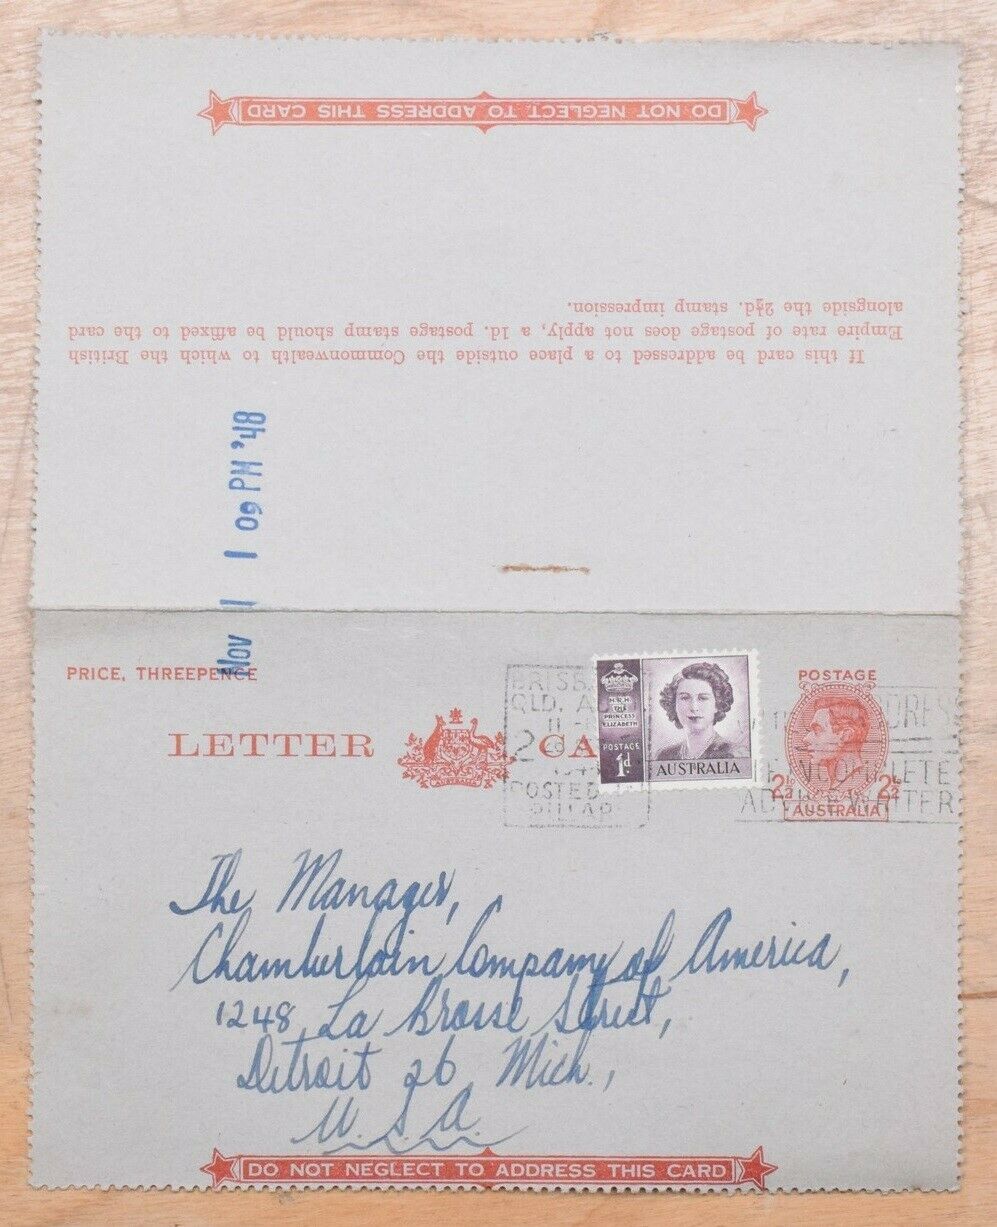 DO NOT NEGLECT TO ADDRESS THIS CARD
If this card be addressed to a place outside the Commonwealth to which the British
Empire rate of postage does not apply, a 1d. postage stamp should be affixed to the card
alongside the 2½d. stamp impression.
Nov 1 1 09 PM '48
PRICE, THREEPENCE
LETTER CA
H.R.H.
THE
PRINCESS
ELIZABETH
POSTAGE
1d
AUSTRALIA
POSTAGE
2½ 2½
AUSTRALIA
BRISB
QLD. A
2
POSTED
PILLAR
DRESS
INCOMPLETE
WRITER
The Manager,
Chamberlain Company of America,
1248, La Brosse Street,
Detroit 26, Mich.,
U.S.A.
DO NOT NEGLECT TO ADDRESS THIS CARD